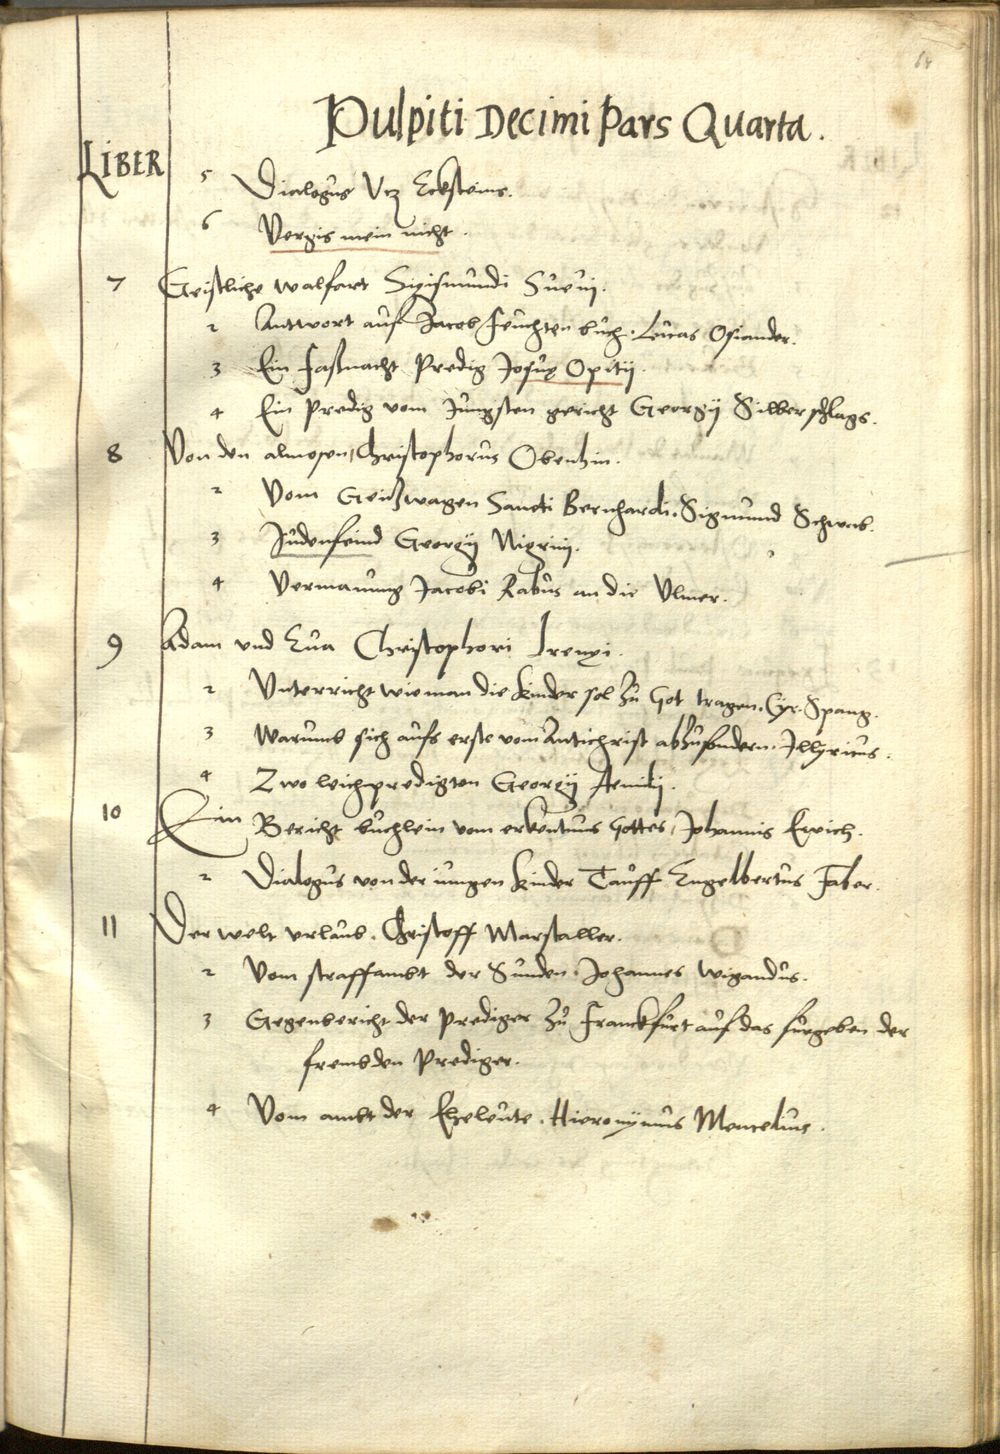 64
Pulpiti Decimi Pars Quarta.
LIBER
5 Dialogus Utz Ecksteins.
6 Vergis mein nicht.
7 Geistliche walfart Sigismundi Suevi.
2 Antwort auf Jacob Feuchten buch. Lucas Osiander.
3 Ein Faßnacht Predig Josuę Opitij.
4 Ein Predig vom Jungsten gericht Georgij Silberschlags.
8 Von den almosen, Christophorus Obenhin.
2 Vom Geißwagen Sancti Bernhardi. Sigmund Schwob.
3 Judenfeind Georgij Nigrini.
4 Vermanung Jacobi Rabus an die Ulmer.
9 Adam und Eva Christophori Irenęi.
2 Unterricht wie man die Kinder sol zu Got tragen. Cyr. Spang.
3 Warumb sich aufs erste vom Antichrist abzusondern. Illyricus.
4 Zwo leichpredigten Georgij Aemilij.
10 Ein Bericht buchlein vom erkentnus Gottes, Johannis Ewich.
2 Dialogus von der jungen Kinder Tauff Engelbertus Faber.
11 Der welt urlaub. Christoff Marstaller.
2 Vom straffambt der Sunden. Johannes Wigandus.
3 Gegenbericht der Prediger zu Franckfurt auf das furgeben der
frembden Prediger.
4 Vom ambt der Eheleute. Hieronymus Mencelius.